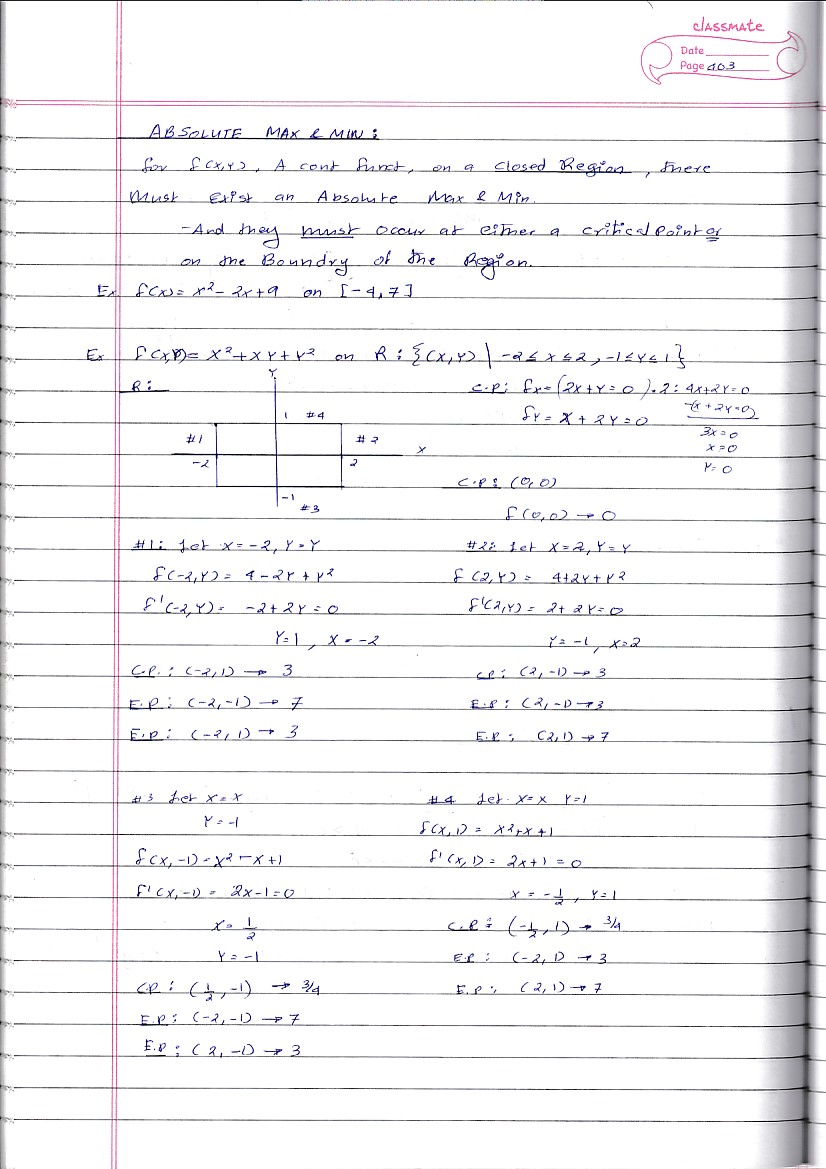 classmate
Date
Page 403
ABSOLUTE MAX & MIN :
for f(x,y), A cont funct, on a closed Region, there
Must Exist an Absolute Max & Min.
- And they must occur at either a critical Point or
on the Boundry of the Region.
Ex f(x) = x² - 2x + 9 on [-4,7]
Ex f(x,y) = x² + xy + y² on R : {(x,y) | -2 ≤ x ≤ 2, -1 ≤ y ≤ 1}
R :
Y
1 #4
#1 #2
-2 2 X
-1
#3
C.P: fx = (2x+y = 0).2 : 4x+2y=0
fy = x + 2y = 0
-(x + 2y=0)
3x = 0
x = 0
y = 0
C.P : (0,0)
f(0,0) → 0
#1: Let x = -2, y = y
f(-2,y) = 4 - 2y + y²
f'(-2,y) = -2 + 2y = 0
y = 1, x = -2
C.P. : (-2,1) → 3
E.P : (-2,-1) → 7
E.P : (-2,1) → 3
#2: Let x=2, y=y
f(2,y) = 4+2y+y²
f'(2,y) = 2+2y=0
y = -1, x=2
CP : (2,-1) → 3
E.P : (2,-1) → 3
E.P : (2,1) → 7
#3 Let x = x
y = -1
f(x,-1) = x² - x + 1
f'(x,-1) = 2x-1=0
x = 1/2
y = -1
C.P : (1/2, -1) → 3/4
E.P : (-2,-1) → 7
E.P : (2,-1) → 3
#4 Let x=x y=1
f(x,1) = x²+x+1
f'(x,1) = 2x+1 = 0
x = -1/2, y=1
C.P : (-1/2, 1) → 3/4
E.P : (-2,1) → 3
E.P : (2,1) → 7